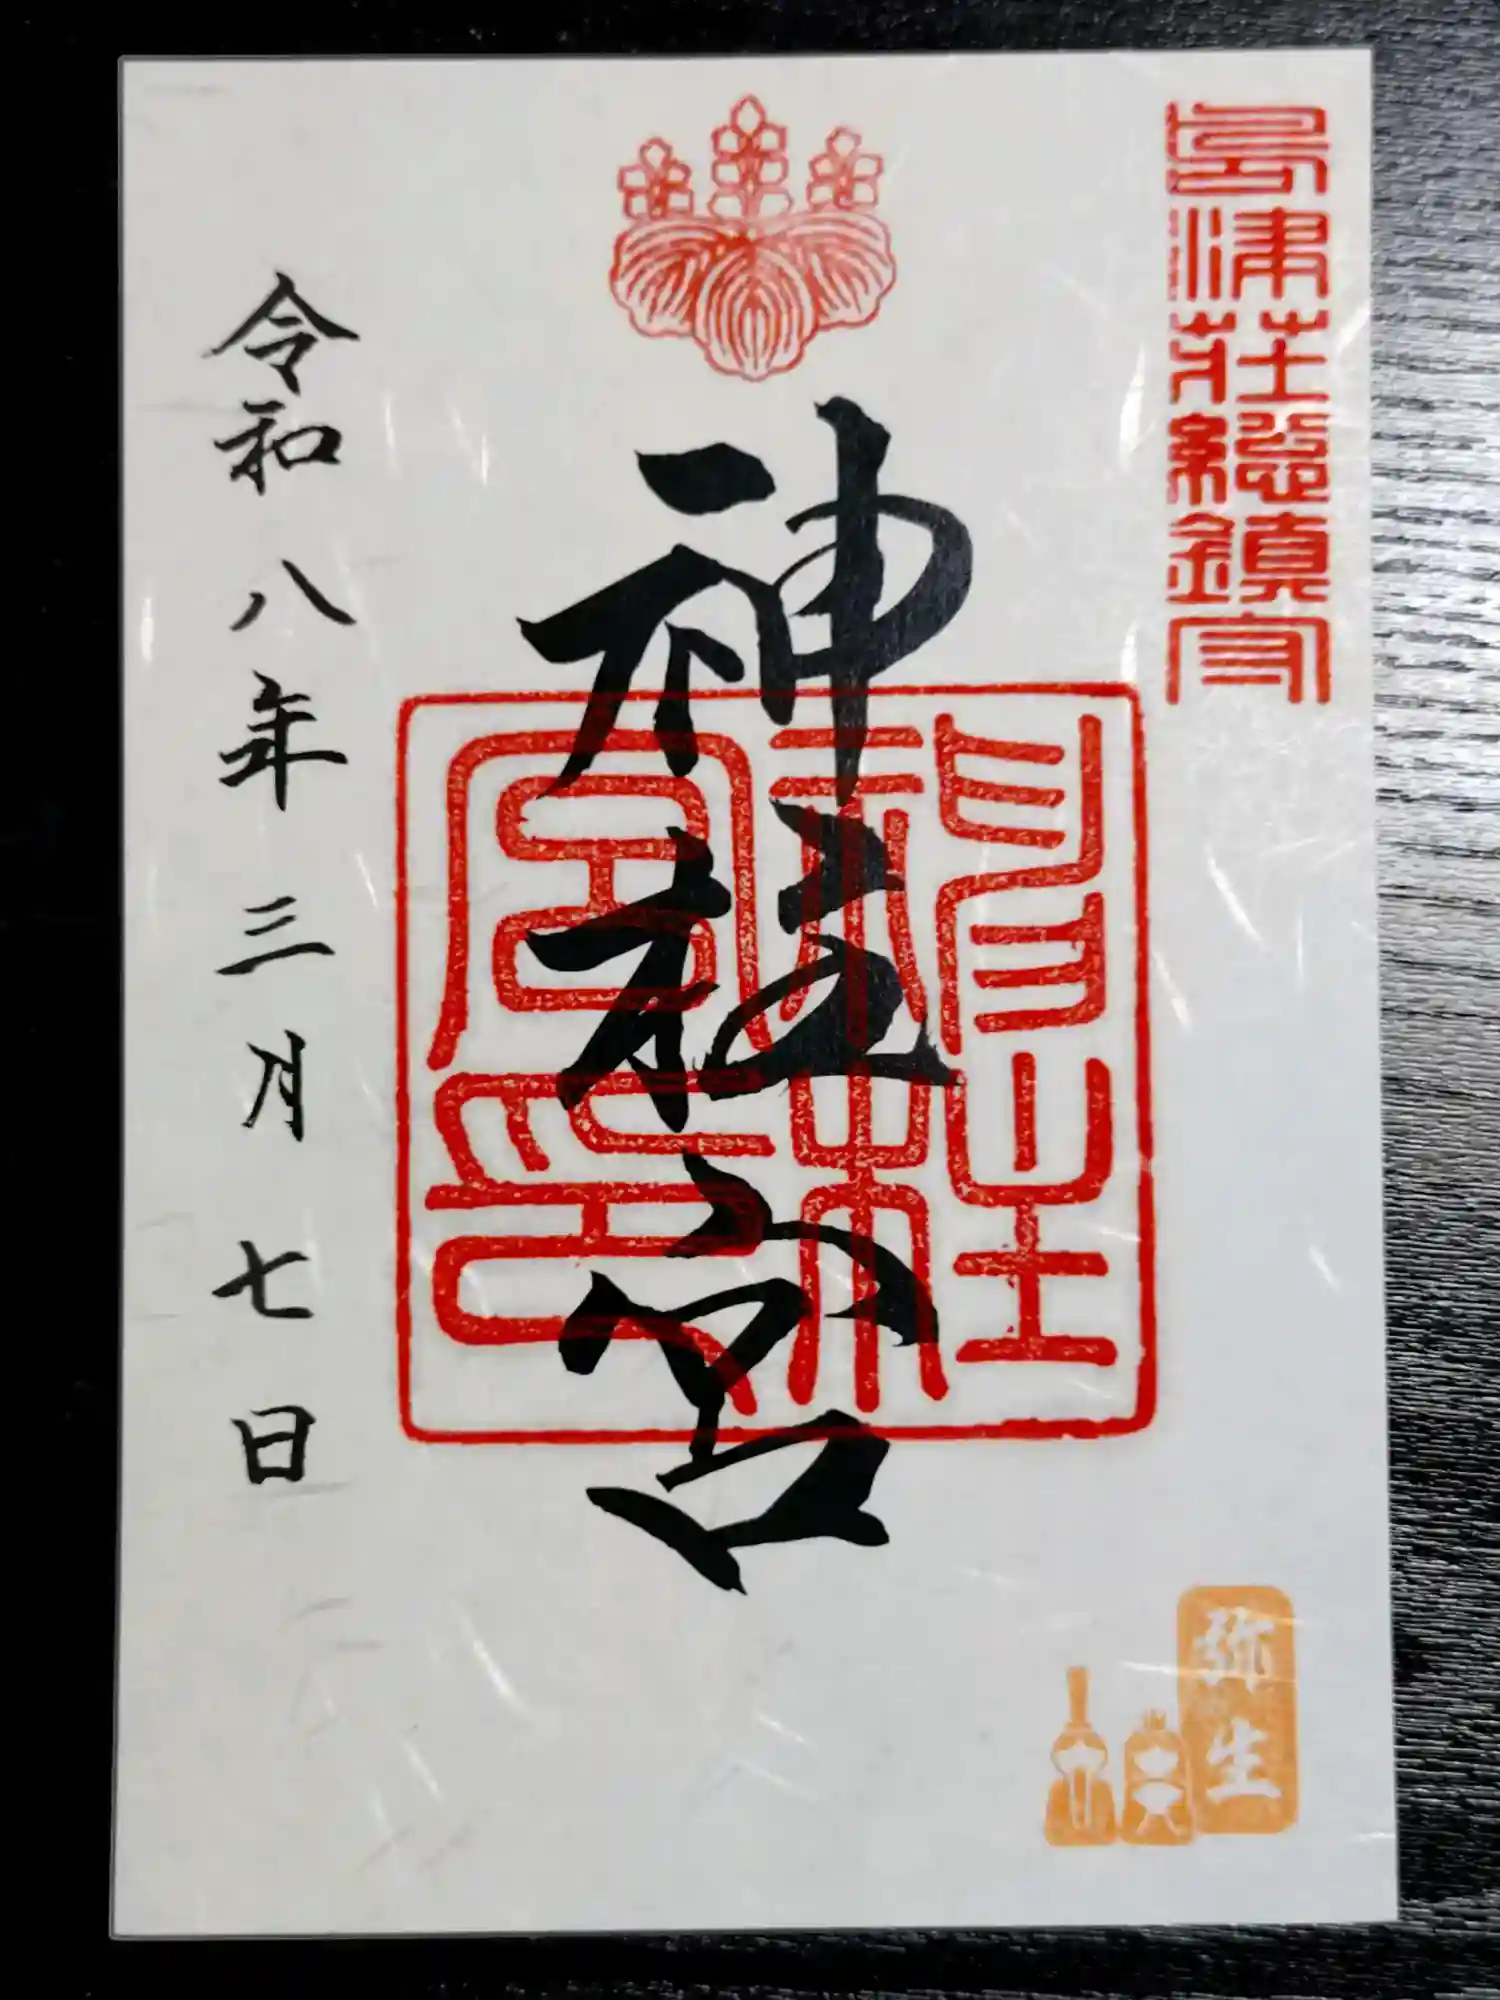 島津荘總鎮守
神柱宮
神柱
宮印
令和八年三月七日
弥生